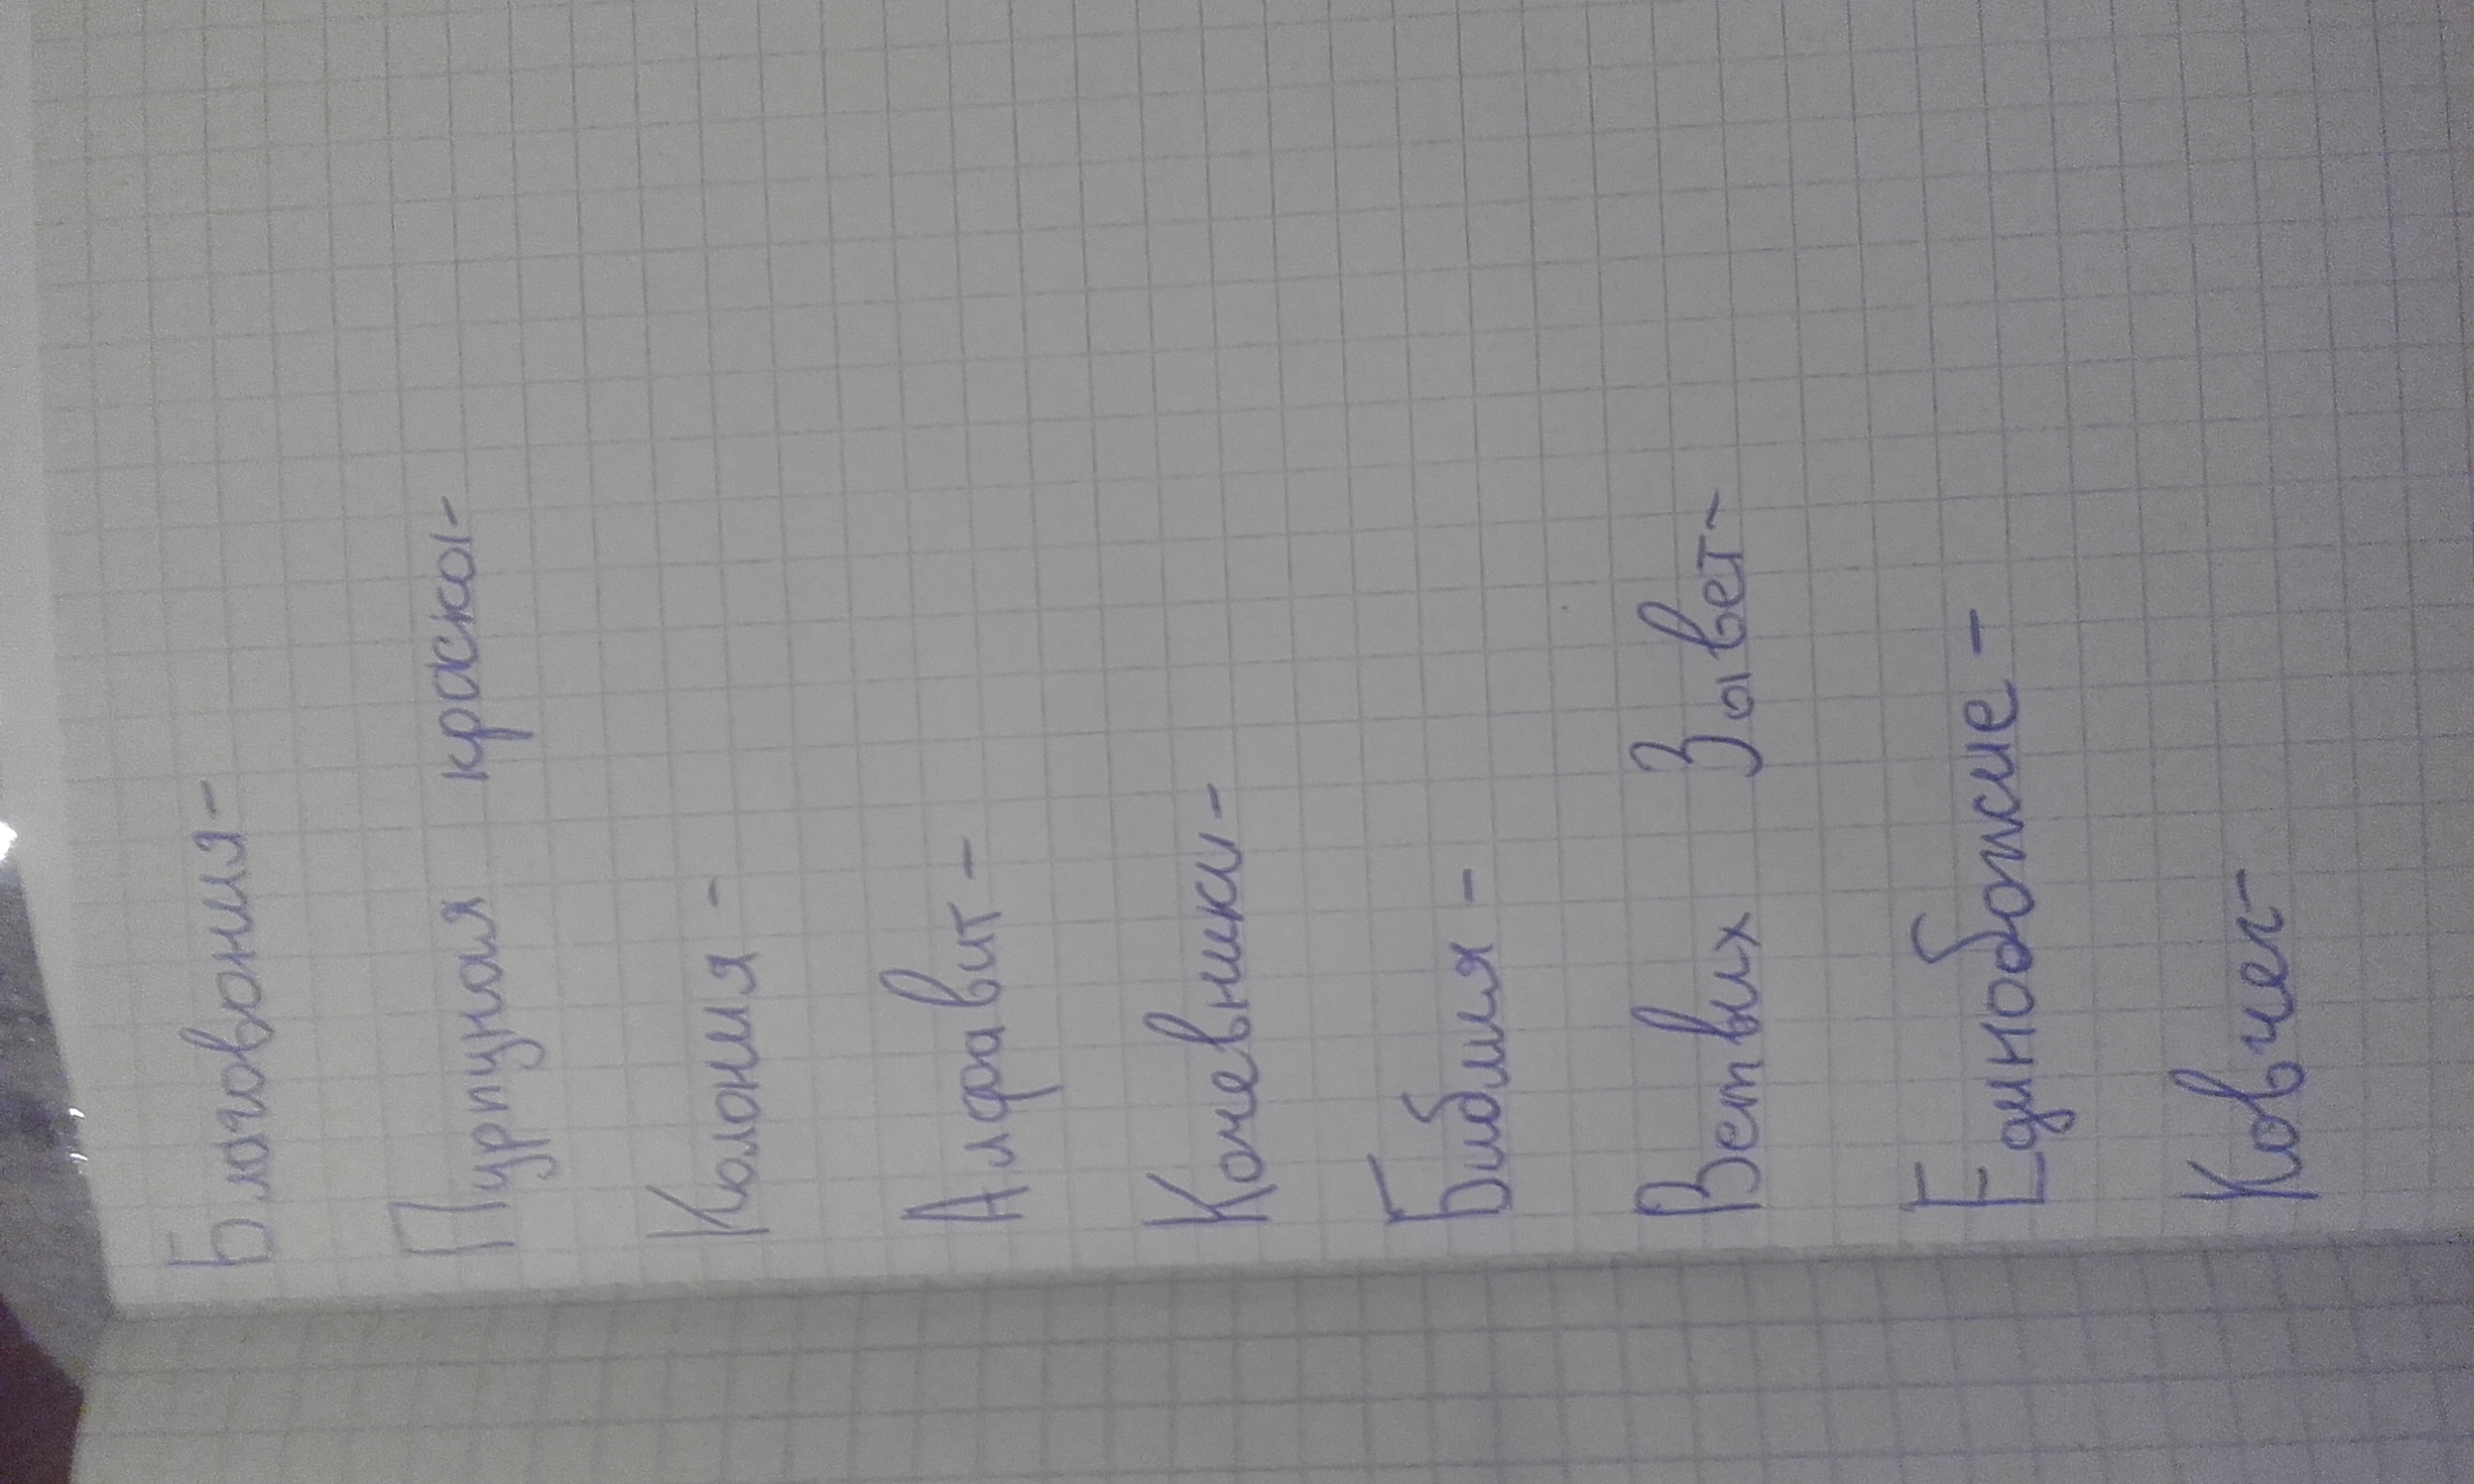 Благовония-
Пурпурная краска-
Колония -
Алфавит -
Кочевники -
Библия -
Ветвих Завет-
Единобожие -
Ковчег-